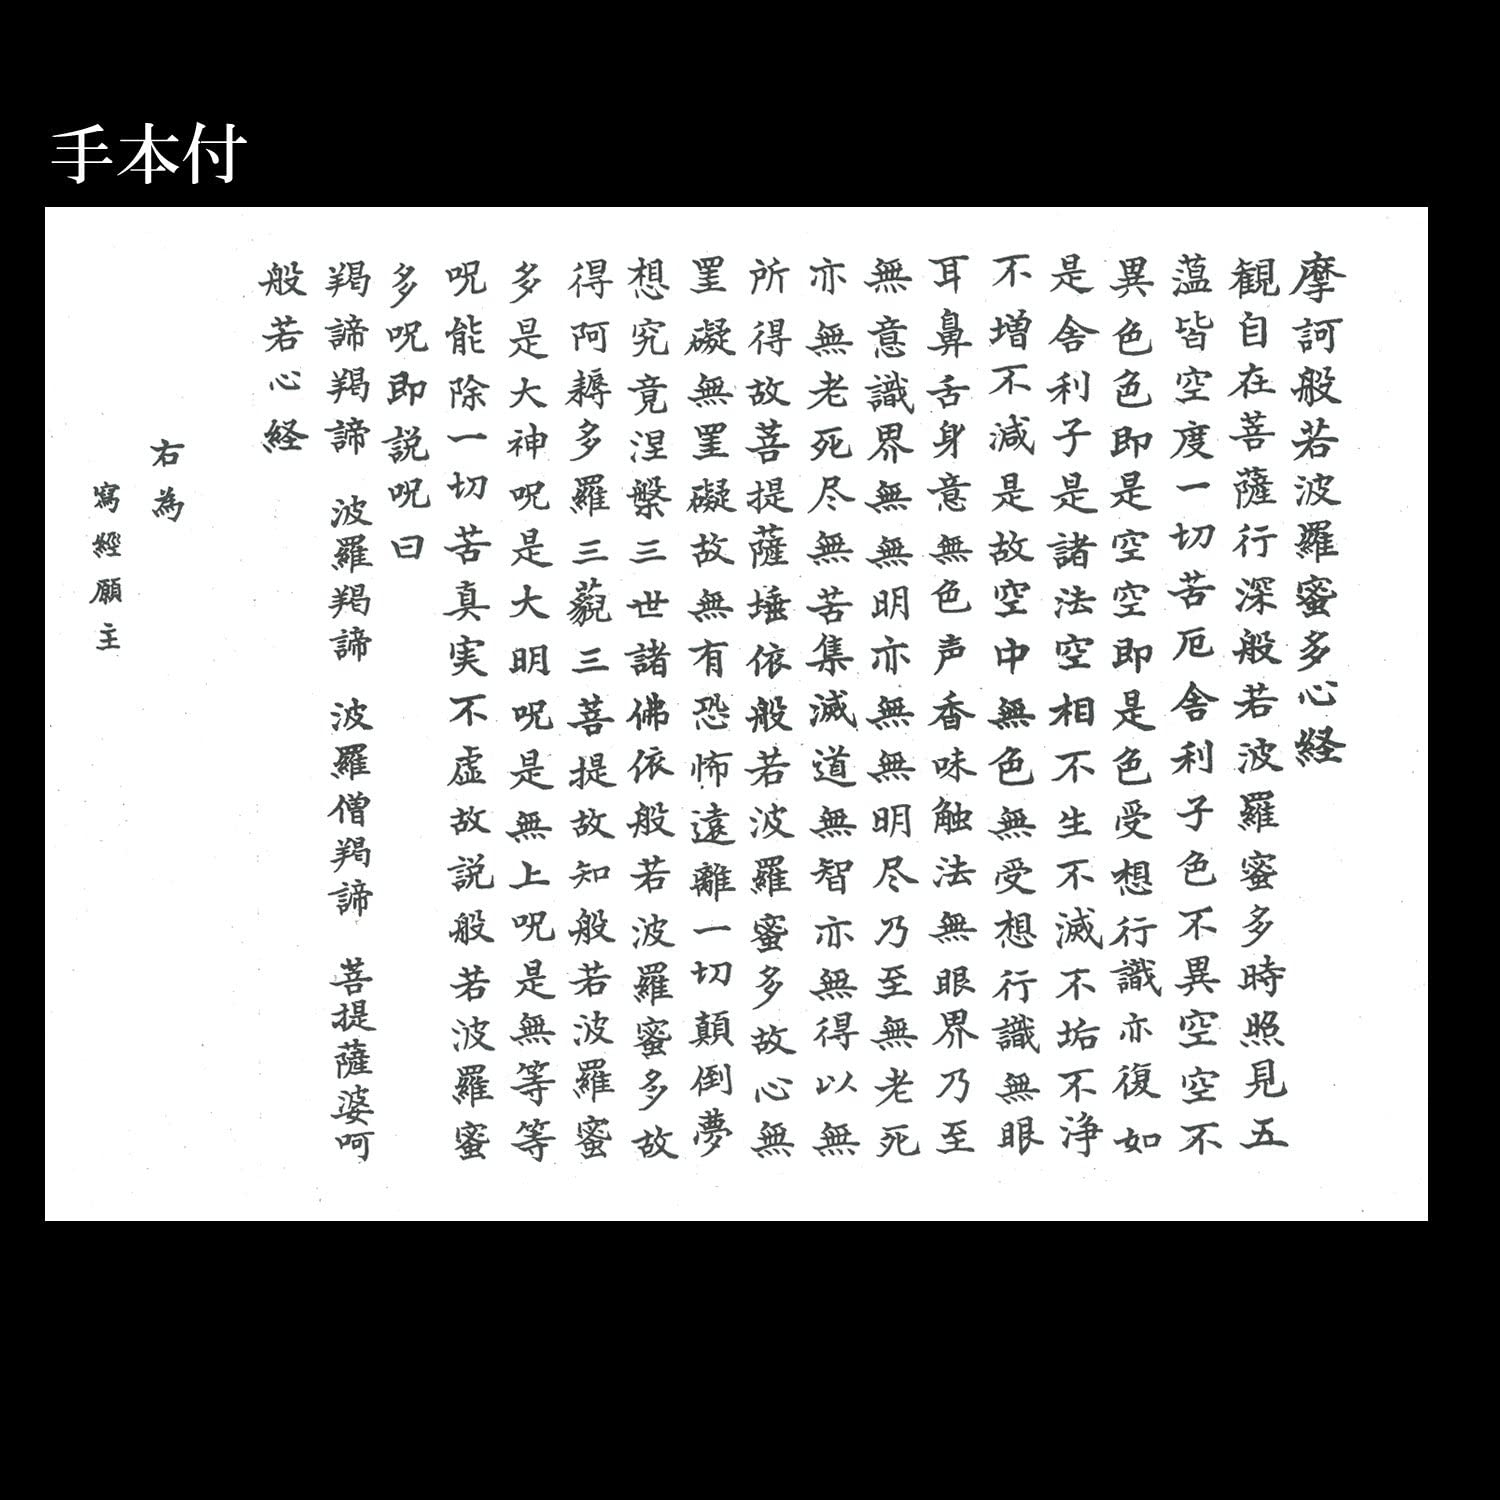 手本付
摩訶般若波羅蜜多心経
観自在菩薩行深般若波羅蜜多時照見五
蕰皆空度一切苦厄舎利子色不異空空不
異色色即是空空即是色受想行識亦復如
是舎利子是諸法空相不生不滅不垢不浄
不増不減是故空中無色無受想行識無眼
耳鼻舌身意無色声香味触法無眼界乃至
無意識界無無明亦無無明尽乃至無老死
亦無老死尽無苦集滅道無智亦無得以無
所得故菩提薩埵依般若波羅蜜多故心無
罣礙無罣礙故無有恐怖遠離一切顛倒夢
想究竟涅槃三世諸佛依般若波羅蜜多故
得阿耨多羅三藐三菩提故知般若波羅蜜
多是大神呪是大明呪是無上呪是無等等
呪能除一切苦真実不虚故説般若波羅蜜
多呪即説呪曰
羯諦羯諦　波羅羯諦　波羅僧羯諦　菩提薩婆呵
般若心経
右為
寫經願主